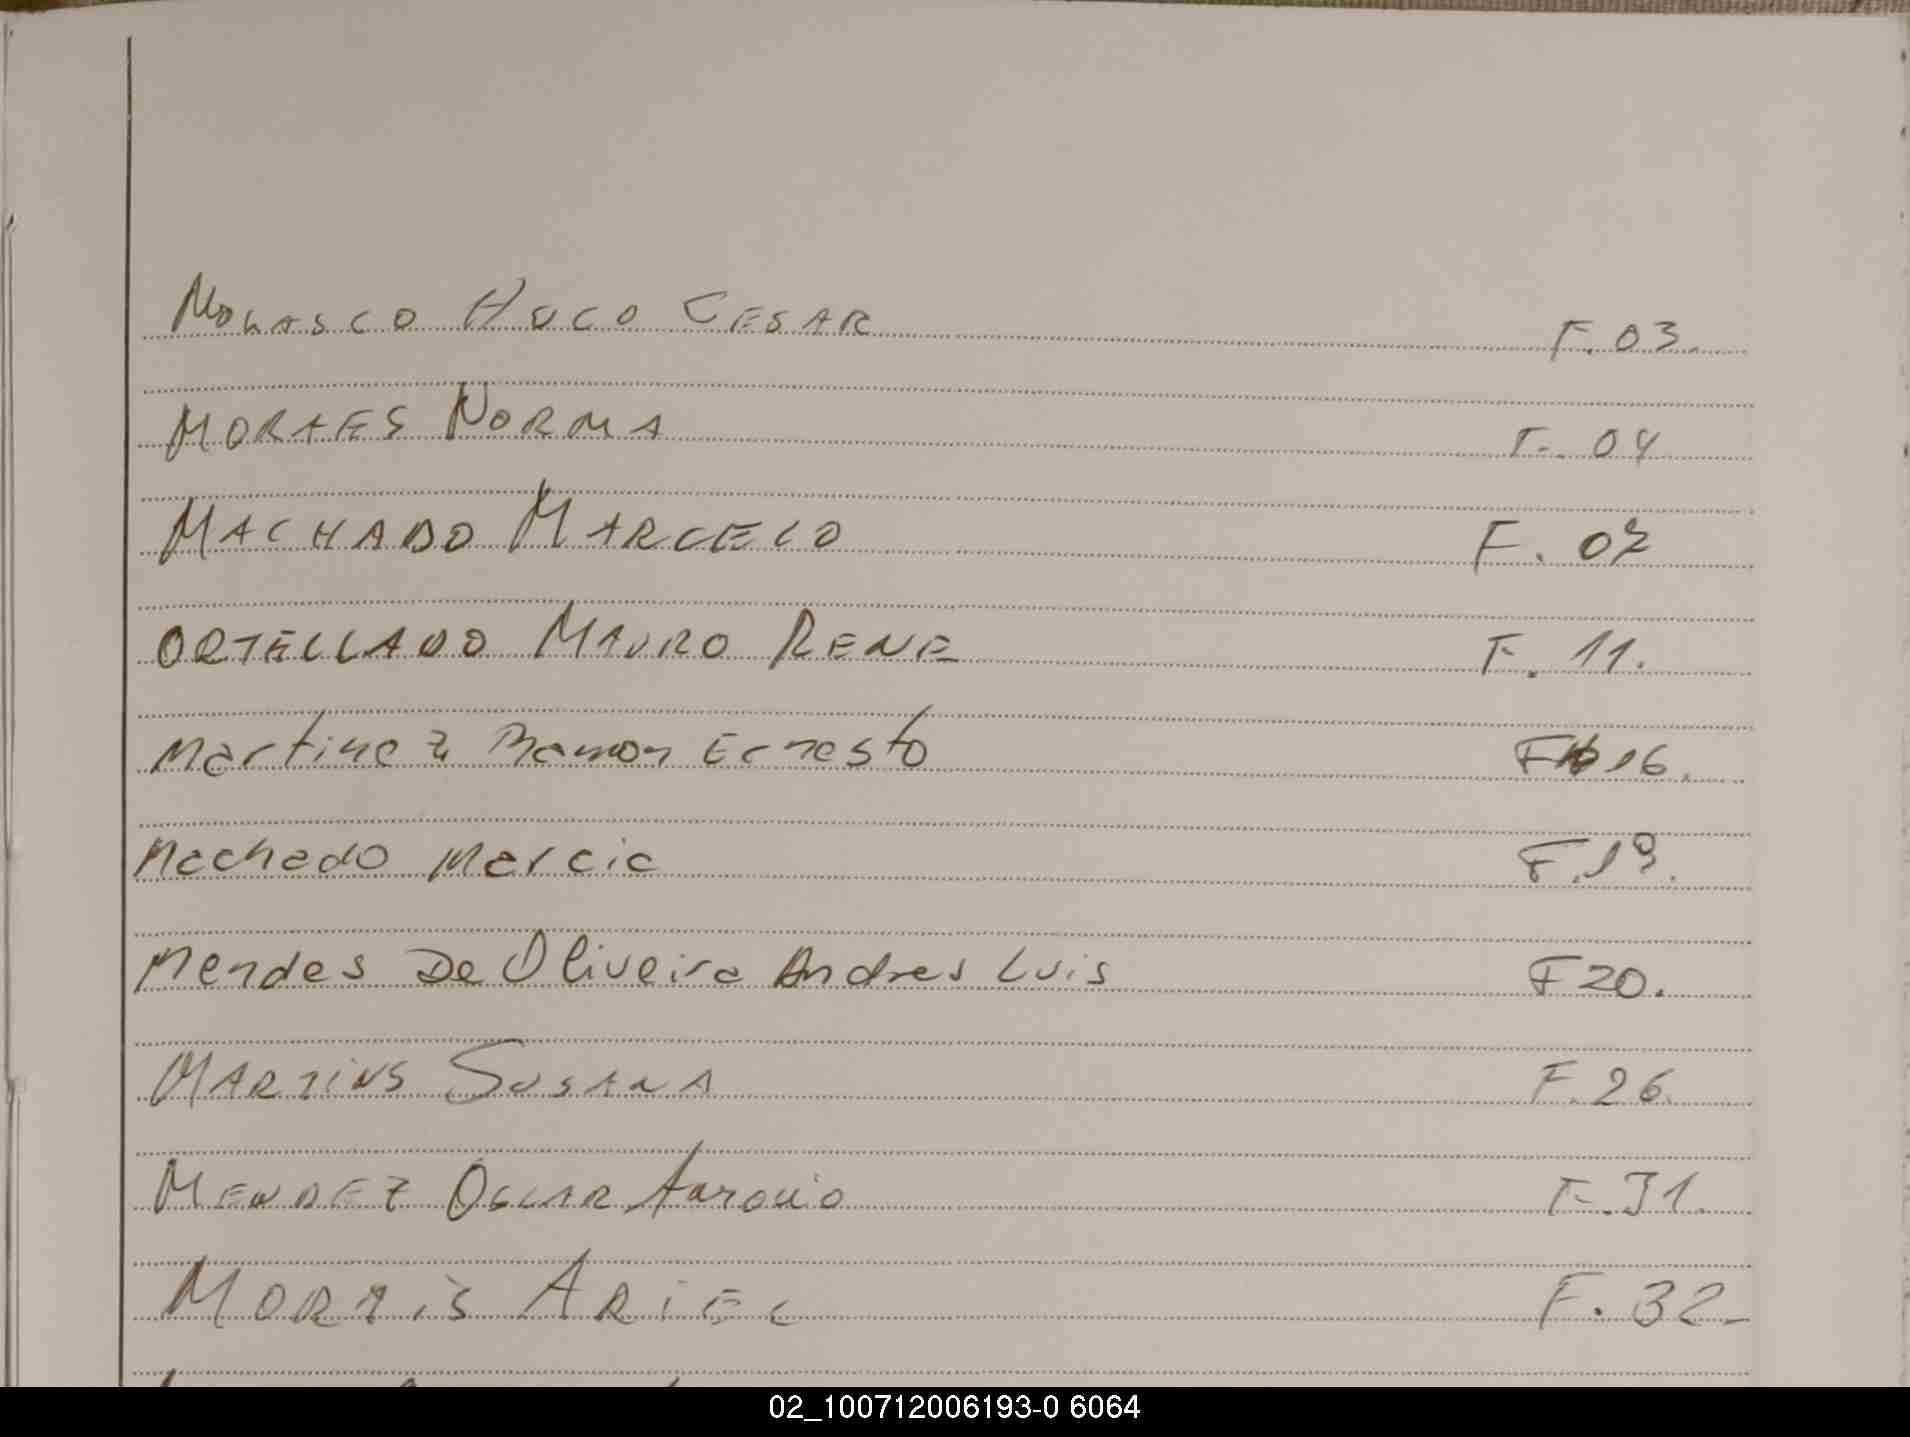 MOLASCO HUGO CESAR F. 03.
MORAES NORMA F. 04
MACHADO MARCELO F. 07
ORTELLADO MAURO RENE F. 11.
Martinez Ramon Ernesto F 16.
Machado Marcia F. 19.
Mendes De Oliveira Andres Luis F 20.
MARTINS SUSANA F. 26.
MENDEZ OSCAR Antonio F. 31.
MORAIS ARIEL F. 32-
02_100712006193-0 6064